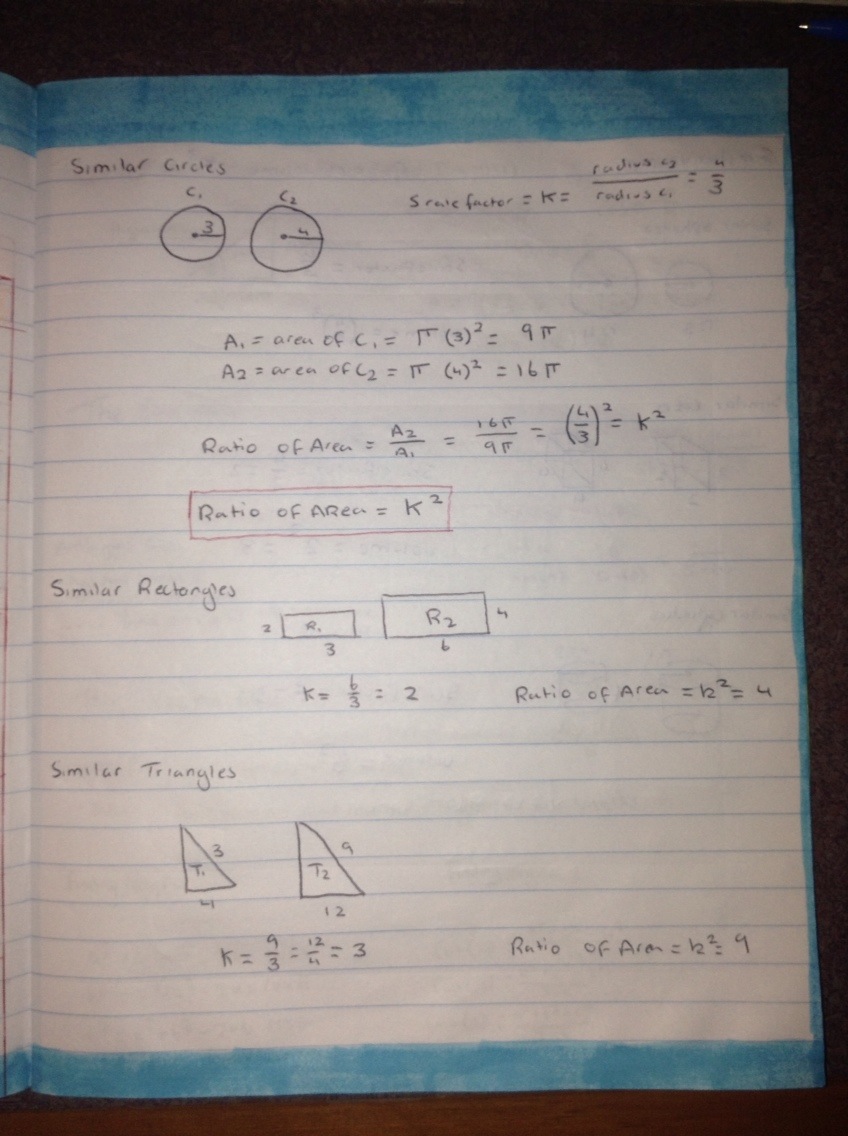 Similar Circles
C₁ C₂
3 4
Scale factor = K = radius C₂ / radius C₁ = 4/3
A₁ = area of C₁ = π (3)² = 9π
A₂ = area of C₂ = π (4)² = 16π
Ratio of Area = A₂/A₁ = 16π/9π = (4/3)² = K²
Ratio of ARea = K²
Similar Rectangles
2 R₁ R₂ 4
3 6
K = 6/3 = 2 Ratio of Area = k² = 4
Similar Triangles
3 9
T₁ T₂
4 12
K = 9/3 = 12/4 = 3 Ratio of Area = k² = 9